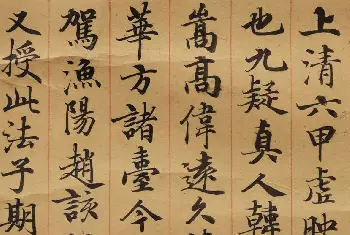 上清六甲虛映
也九疑真人韓
嵩高偉遠久
華方諸臺今
駕漁陽趙該
又授此法子期